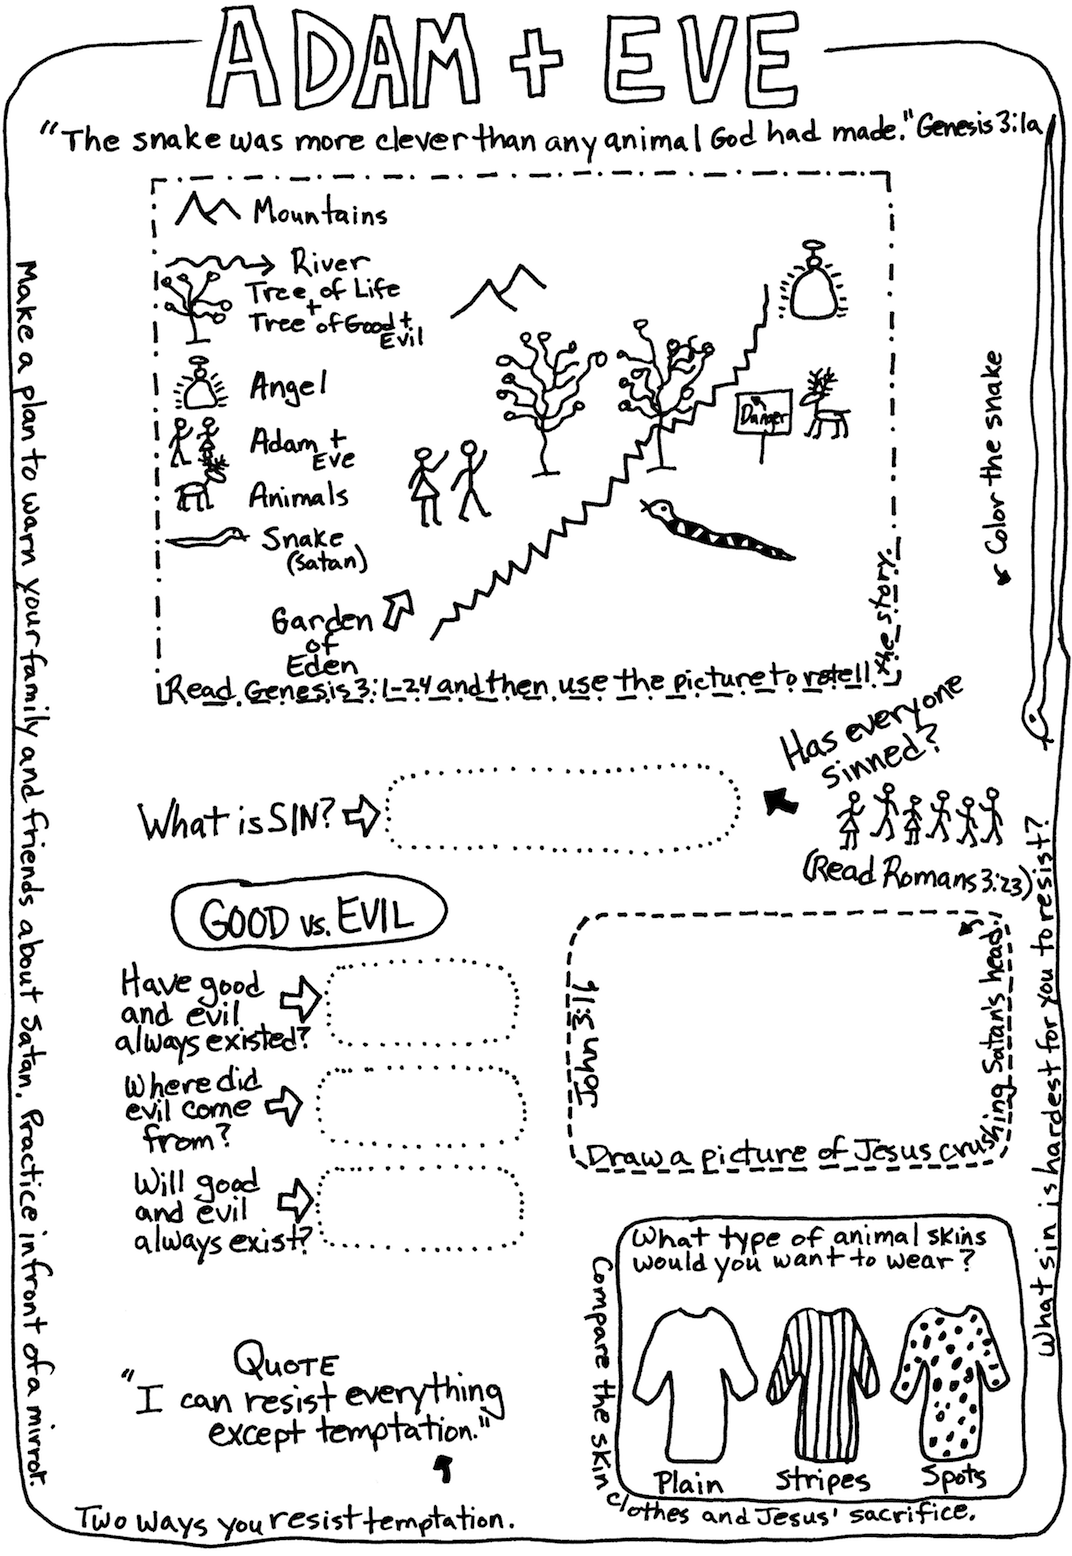 ADAM + EVE
"The snake was more clever than any animal God had made." Genesis 3:1a
Mountains
River
Tree of Life
+
Tree of Good +
Evil
Angel
Adam +
Eve
Animals
Snake
(Satan)
Garden
of
Eden
Danger
Read Genesis 3:1-24 and then use the picture to retell the story.
Color the snake
Make a plan to warn your family and friends about Satan. Practice in front of a mirror.
Has everyone
sinned?
(Read Romans 3:23)
What is SIN?
What sin is hardest for you to resist?
GOOD vs. EVIL
Have good
and evil
always existed?
Where did
evil come
from?
Will good
and evil
always exist?
John 3:16
Draw a picture of Jesus crushing Satan's head.
What type of animal skins
would you want to wear?
Plain
Stripes
Spots
Compare the skin clothes and Jesus' sacrifice.
QUOTE
"I can resist everything
except temptation."
Two ways you resist temptation.